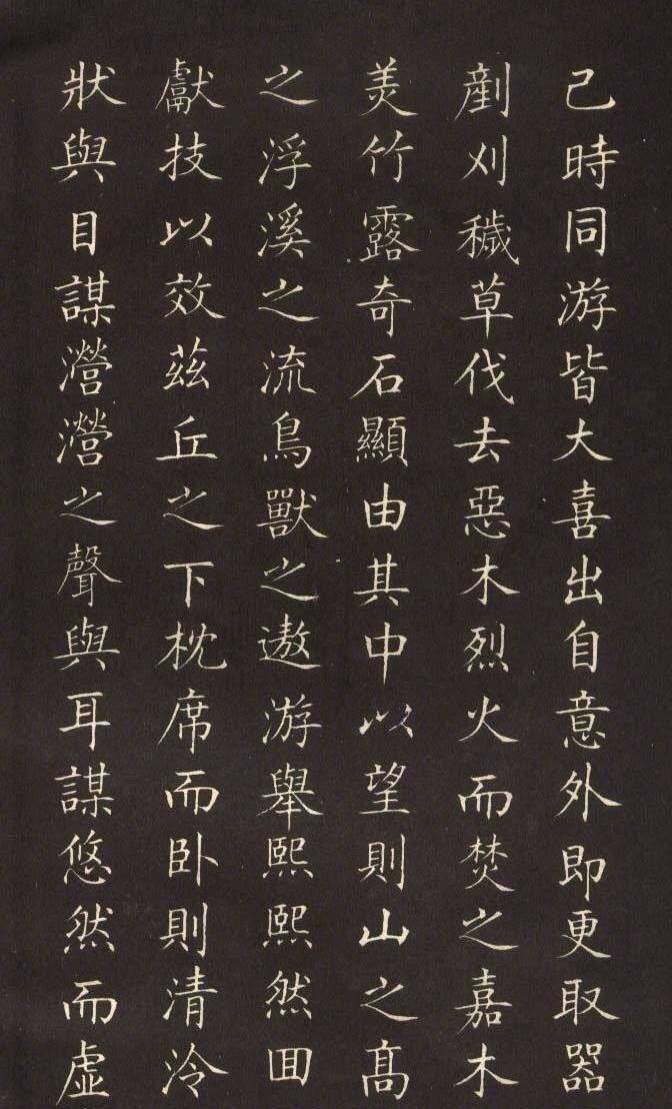 己時同游皆大喜出自意外即更取器
剷刈穢草伐去惡木烈火而焚之嘉木
美竹露奇石顯由其中以望則山之髙
之浮溪之流鳥獸之遨游舉熙熙然囬
獻技以效茲丘之下枕席而卧則清泠
狀與目謀瀯瀯之聲與耳謀悠然而虚